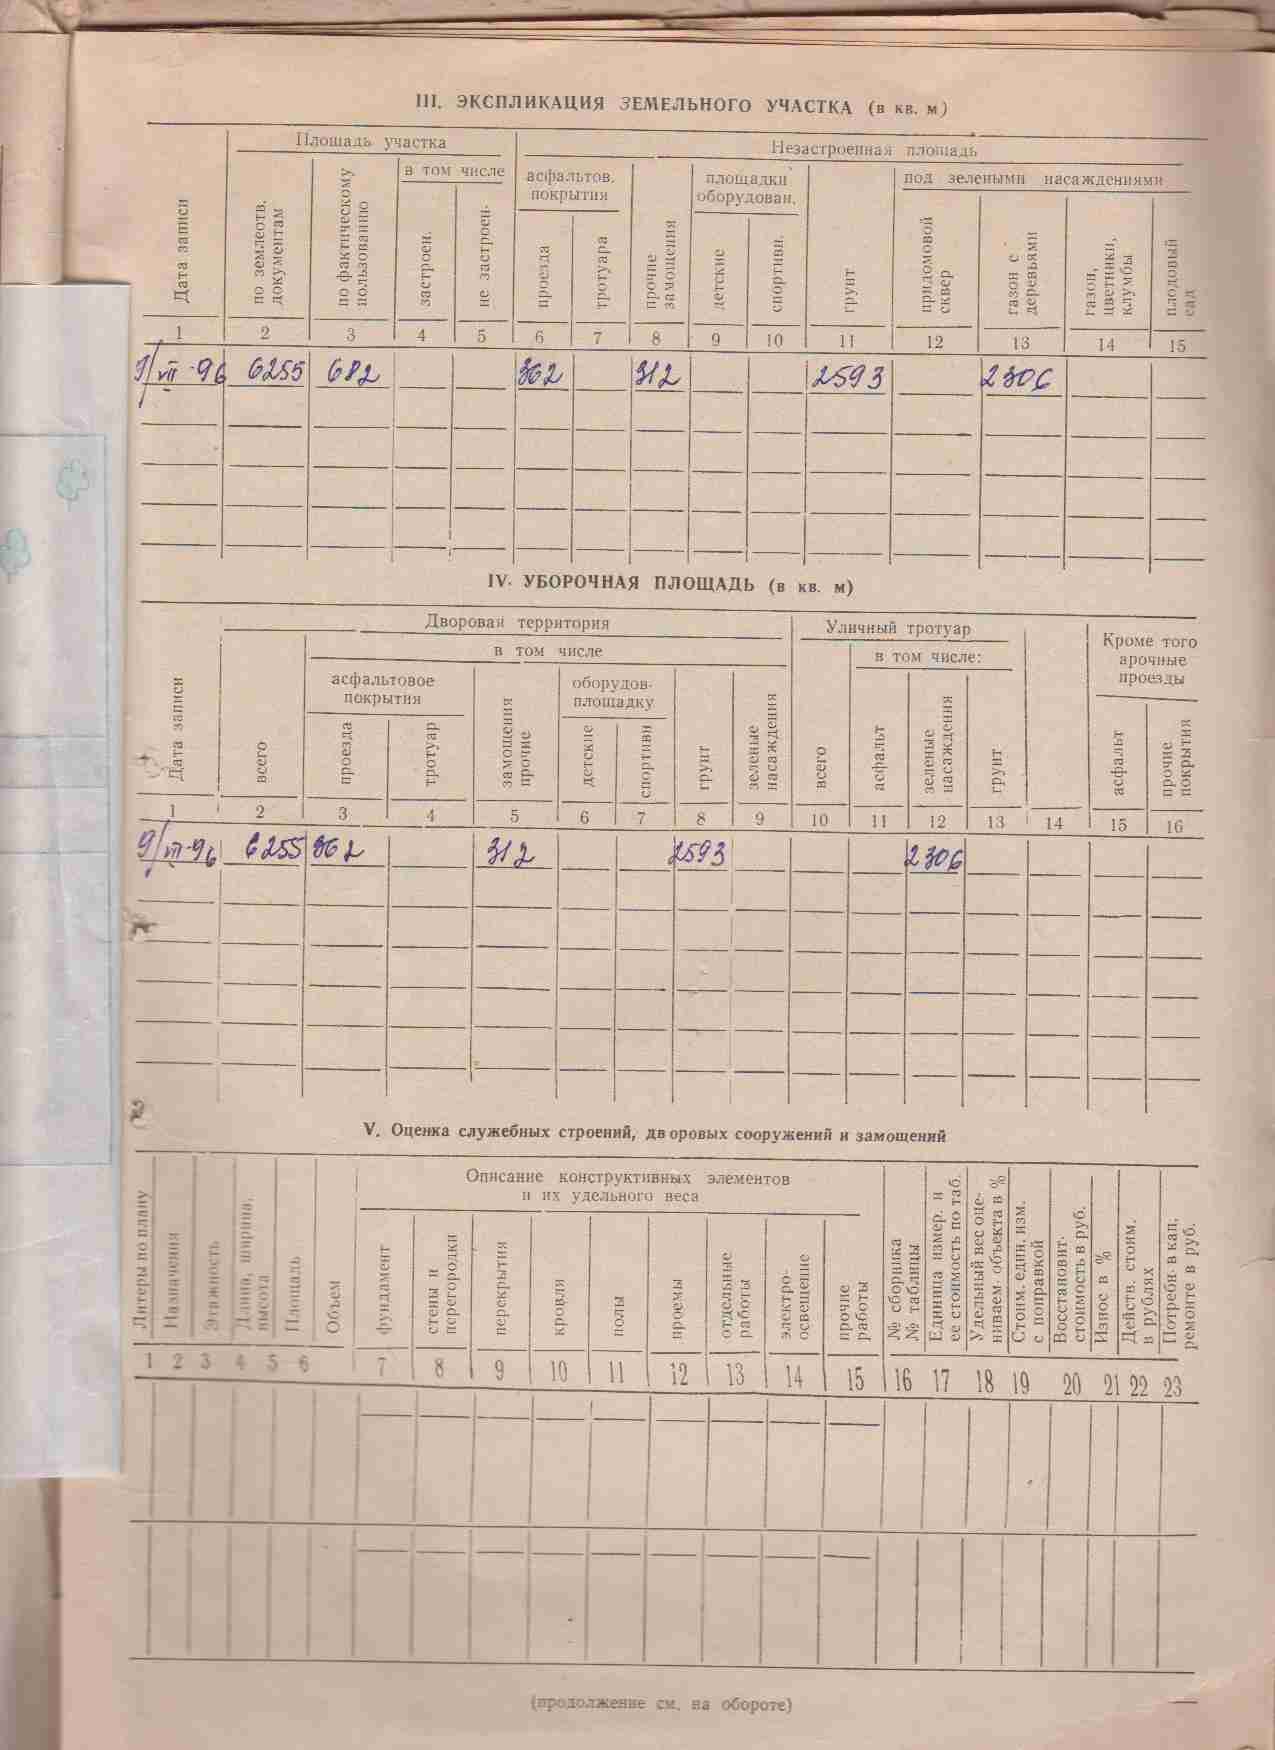 III. ЭКСПЛИКАЦИЯ ЗЕМЕЛЬНОГО УЧАСТКА (в кв. м)
Дата записи
Площадь участка
по землеотв. документам
по фактическому пользованию
в том числе
застроен.
не застроен.
Незастроенная площадь
асфальтов. покрытия
проезда
тротуара
прочие замощения
площадки оборудован.
детские
спортивн.
грунт
под зелеными насаждениями
придомовой сквер
газон с деревьями
газон, цветники, клумбы
плодовый сад
1 2 3 4 5 6 7 8 9 10 11 12 13 14 15
9/VII-96 6255 682 362 312 2593 2306
IV. УБОРОЧНАЯ ПЛОЩАДЬ (в кв. м)
Дата записи
Дворовая территория
всего
в том числе
асфальтовое покрытия
проезда
тротуар
замощения прочие
оборудов. площадку
детские
спортивн
грунт
зеленые насаждения
Уличный тротуар
всего
в том числе:
асфальт
зеленые насаждения
грунт
Кроме того арочные проезды
асфальт
прочие покрытия
1 2 3 4 5 6 7 8 9 10 11 12 13 14 15 16
9/VII-96 6255 362 312 2593 2306
V. Оценка служебных строений, дворовых сооружений и замощений
Литеры по плану
Назначения
Этажность
Длина, ширина, высота
Площадь
Объем
Описание конструктивных элементов
и их удельного веса
фундамент
стены и перегородки
перекрытия
кровля
полы
проемы
отдельные работы
электро-освещение
прочие работы
№ сборника № таблицы
Единица измер. и ее стоимость по таб.
Удельный вес оце-ниваем. объекта в %
Стоим. един. изм. с поправкой
Восстановит. стоимость в руб.
Износ в %
Действ. стоим. в рублях
Потребн. в кап. ремонте в руб.
1 2 3 4 5 6 7 8 9 10 11 12 13 14 15 16 17 18 19 20 21 22 23
(продолжение см. на обороте)